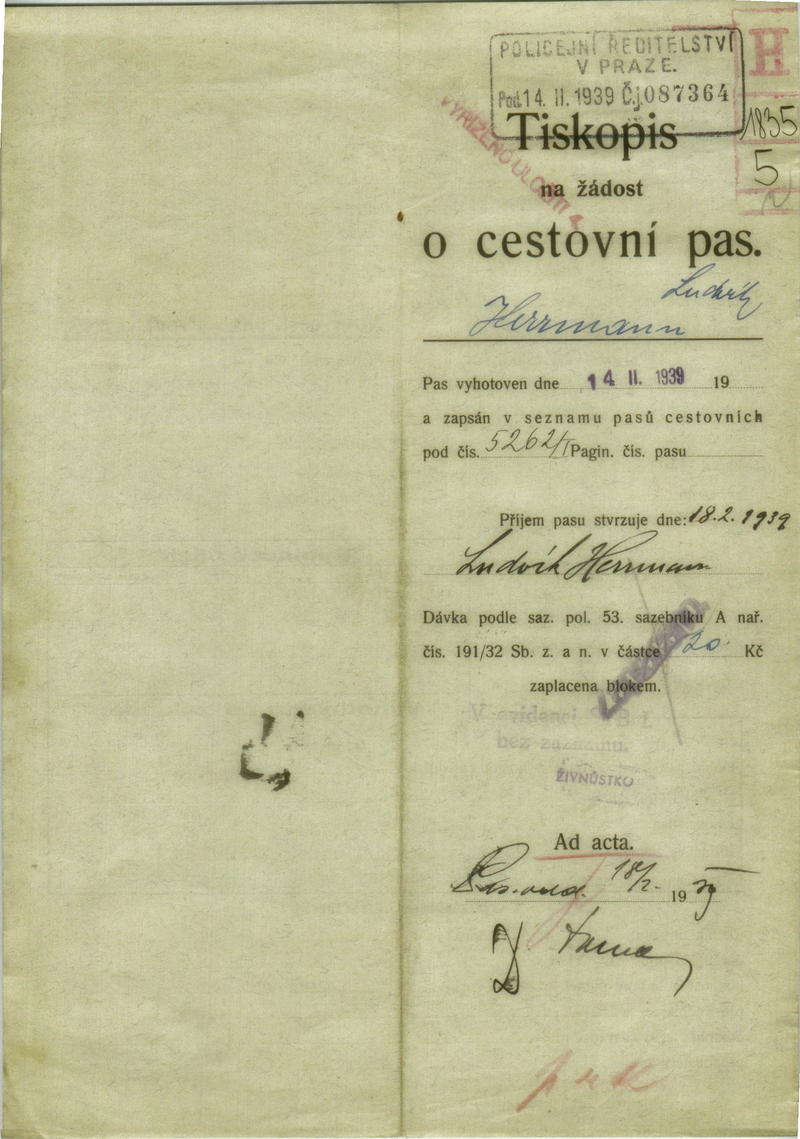 POLICEJNÍ ŘEDITELSTVÍ
V PRAZE.
Pod. 14. II. 1939 Č.j. 087364
H
1835
5
Tiskopis
na žádost
o cestovní pas.
Ludvík
Herrmann
Pas vyhotoven dne 14 II. 1939 19
a zapsán v seznamu pasů cestovních
pod čís. 5262/I Pagin. čís. pasu
Příjem pasu stvrzuje dne: 18.2.1939
Ludvík Herrmann
Dávka podle saz. pol. 53. sazebníku A nař.
čís. 191/32 Sb. z. a n. v částce 20 Kč
zaplacena blokem.
V evidenci
bez záznamu.
ŽIVNŮSTKO
Ad acta.
18/2. 19 39